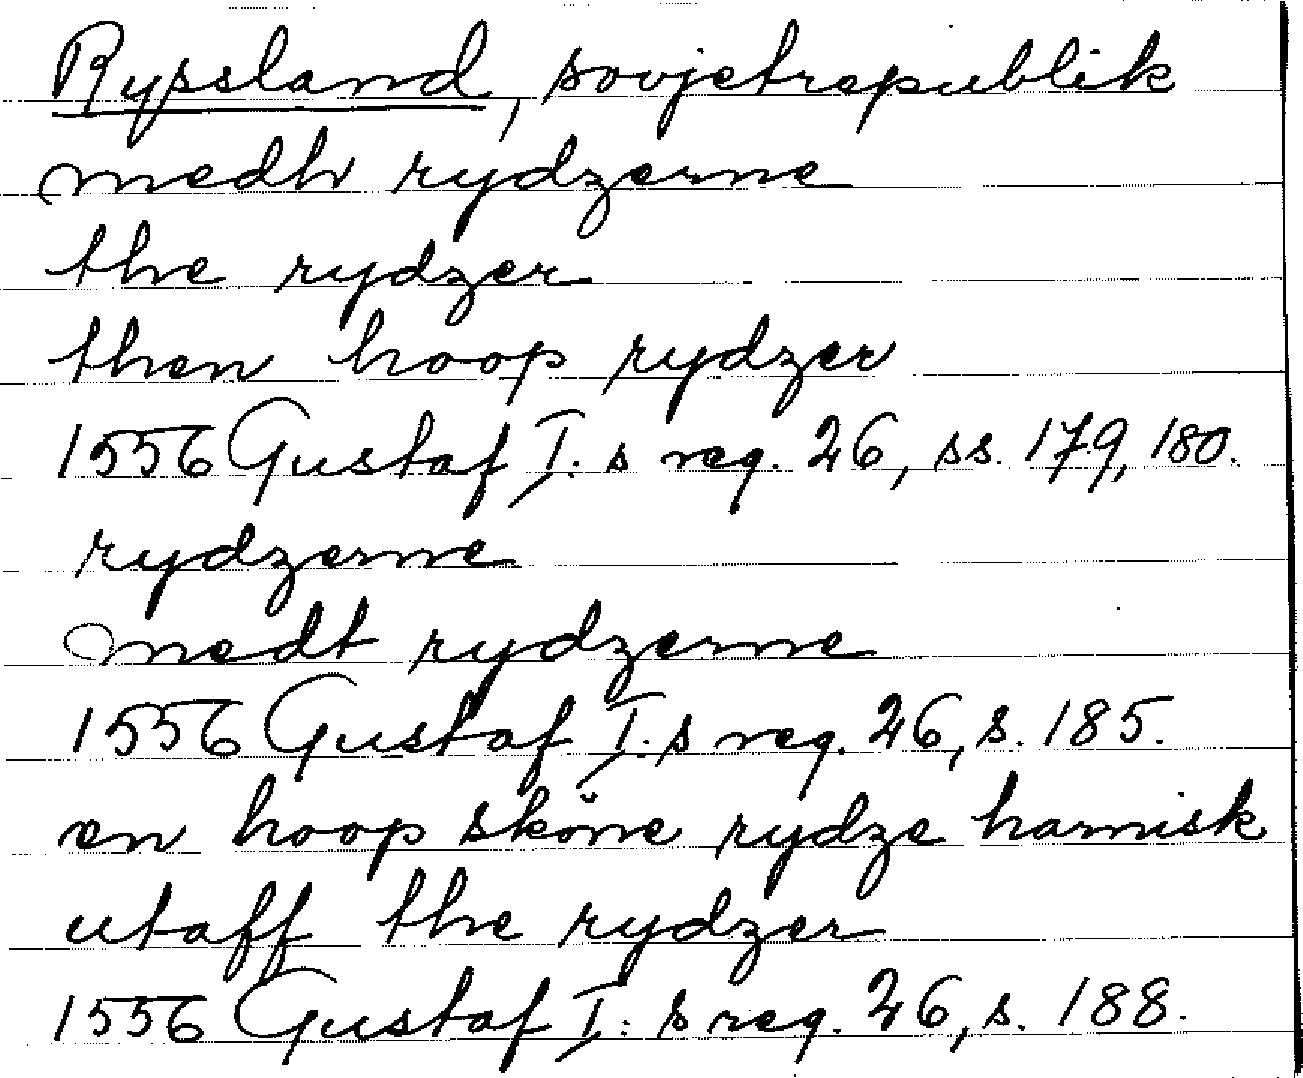 Ryssland, sovjetrepublik
medh rydzerne
the rydzer
then hoop rydzer
1556 Gustaf I:s reg. 26, ss. 179, 180.
rydzerne
medt rydzerne
1556 Gustaf I:s reg. 26, s. 185.
en hoop sköne rydze harnisk
utaff the rydzer
1556 Gustaf I:s reg. 26, s. 188.